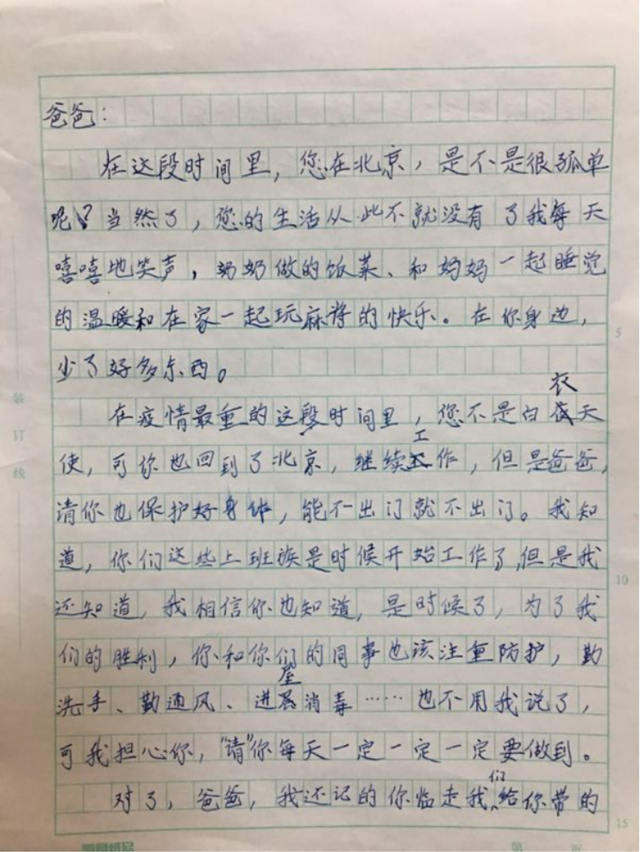 爸爸：
在这段时间里，您在北京，是不是很孤单
呢？当然了，您的生活从此不就没有了我每天
嘻嘻地笑声，奶奶做的饭菜、和妈妈一起睡觉
的温暖和在家一起玩麻将的快乐。在你身边，
少了好多东西。
在疫情最重的这段时间里，您不是白衣天
使，可你也回到了北京，继续工作，但是爸爸，
请你也保护好身体，能不出门就不出门。我知
道，你们这些上班族是时候开始工作了，但是我
还知道，我相信你也知道，是时候了，为了我
们的胜利，你和你们的同事也该注重防护，勤
洗手、勤通风、进屋消毒……也不用我说了，
可我担心你，“请”你每天一定一定一定要做到。
对了，爸爸，我还记的你临走我们给你带的
装订线
5
10
15
第 页